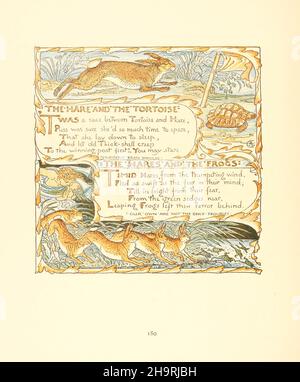 THE·HARE·AND·THE·TORTOISE·
'TWAS a race between Tortoise and Hare,
Puss was sure she'd so much time to spare,
That she lay down to sleep,
And let old Thick-shell creep
To the winning post first!—You may stare.
THE·HARES·AND·THE·FROGS:
TIMID Hares, from the trumpeting wind,
Fled as swift as the fear in their mind,
Till in fright from their fear,
From the green sedges near,
Leaping Frogs left their terror behind.
150
alamy